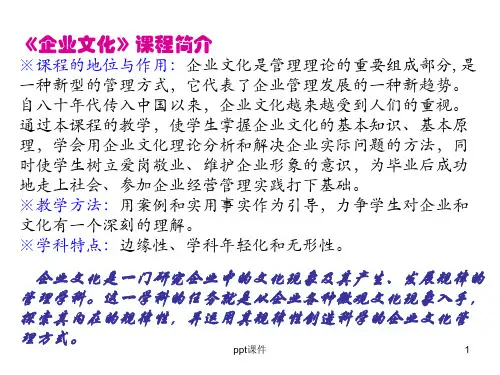 《企业文化》课程简介
※课程的地位与作用：企业文化是管理理论的重要组成部分,是
一种新型的管理方式，它代表了企业管理发展的一种新趋势。
自八十年代传入中国以来，企业文化越来越受到人们的重视。
通过本课程的教学，使学生掌握企业文化的基本知识、基本原
理，学会用企业文化理论分析和解决企业实际问题的方法，同
时使学生树立爱岗敬业、维护企业形象的意识，为毕业后成功
地走上社会、参加企业经营管理实践打下基础。
※教学方法：用案例和实用事实作为引导，力争学生对企业和
文化有一个深刻的理解。
※学科特点：边缘性、学科年轻化和无形性。
企业文化是一门研究企业中的文化现象及其产生、发展规律的
管理学科。这一学科的任务就是从企业各种微观文化现象入手，
探索其内在的规律性，并运用其规律性创造科学的企业文化管
理方式。
ppt课件
1